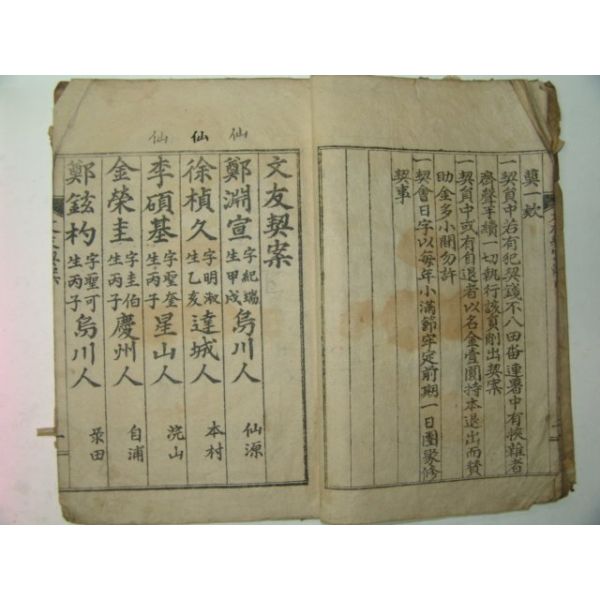 奠一欸
一契員中若有犯契錢不入田畓連署中有挾雜者
齊聲手續一切執行該員削出契案
一契員中或有自退者以名金壹圓持本退出而賛
助金多小關勿許
一契會日字以每年小滿節字定前期一日團聚修
契事
文友契案
仙 鄭淵宣 字紀瑞 生甲戌 烏川人 仙源
仙 徐楨久 字明淑 生乙亥 達城人 本村
仙 李碩基 字聖奎 生丙子 星山人 浣山
金榮圭 字圭伯 生丙子 慶州人 自浦
鄭鉉杓 字聖可 生丙子 烏川人 录田